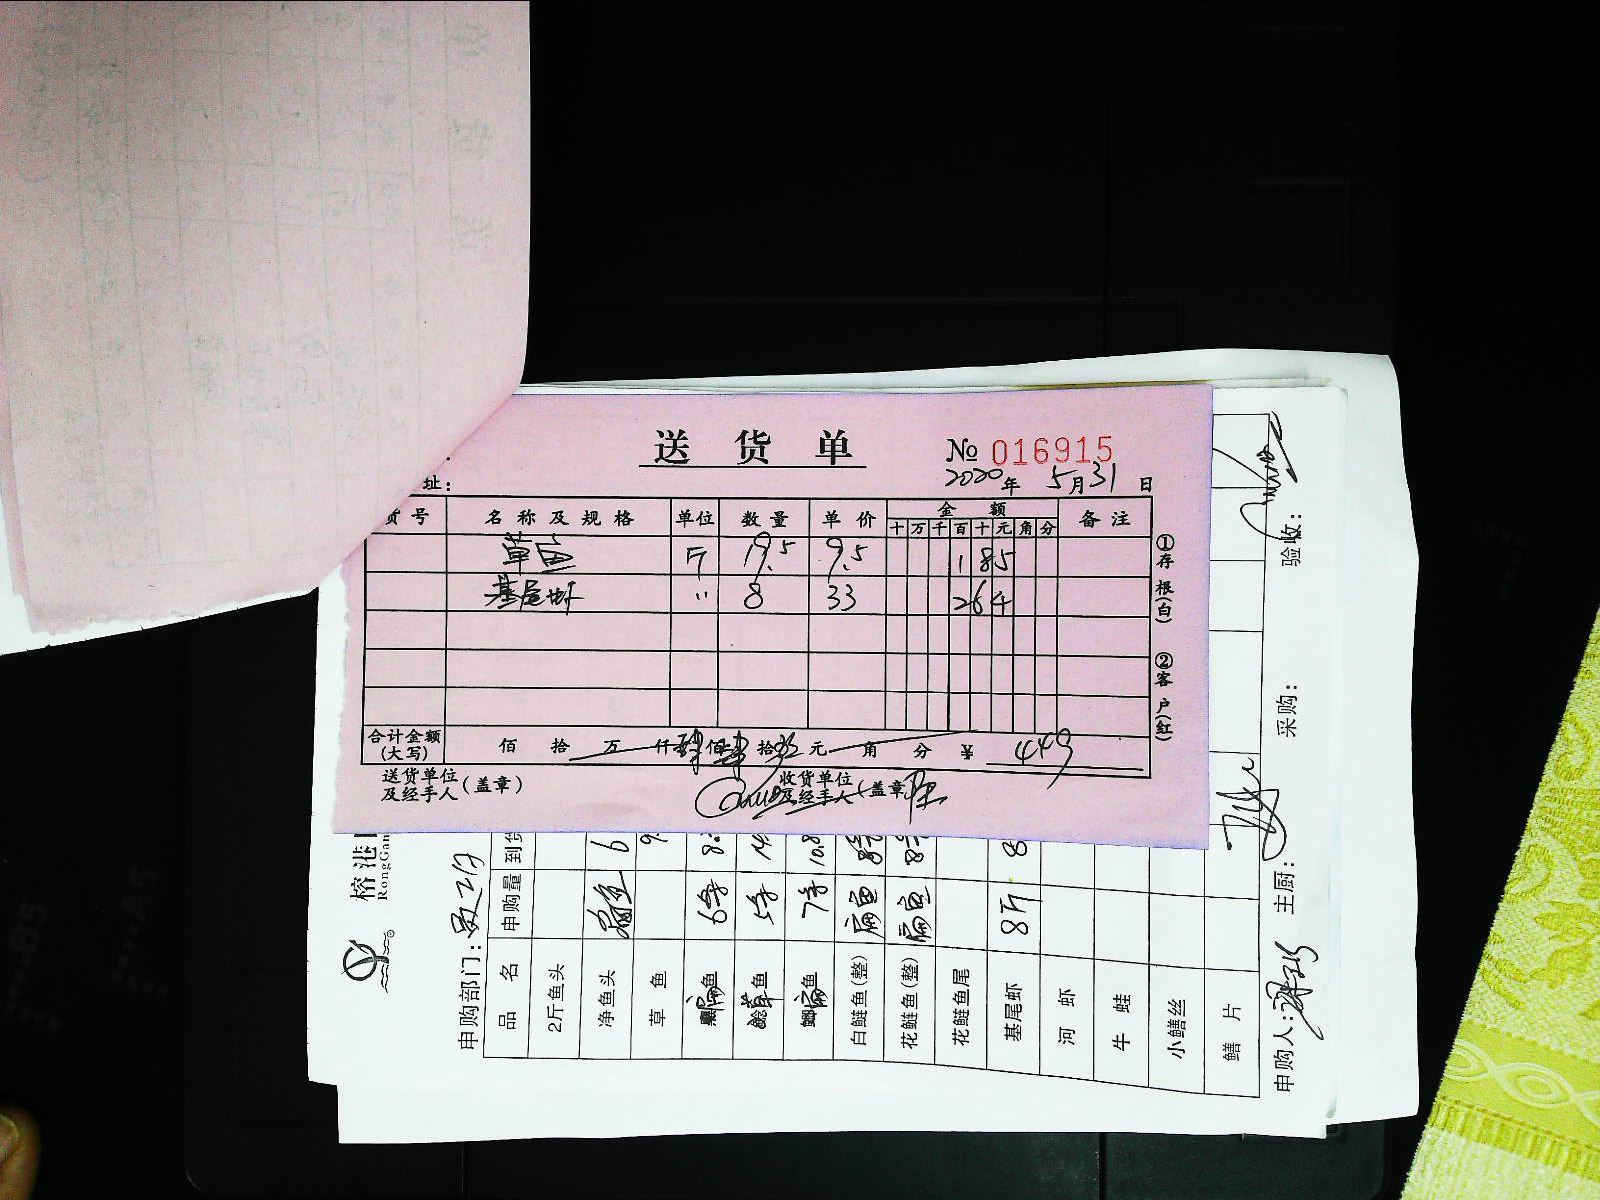 送货单
№ 016915
址：
2020年 5月31日
货号 名称及规格 单位 数量 单价 金额 备注
十 万 千 百 十 元 角 分
草鱼 斤 19.5 9.5 185
基尾虾 〃 8 33 264
合计金额(大写) 佰 拾 万 仟 肆佰 肆拾 玖元 角 分 ¥ 449
送货单位及经手人(盖章) 收货单位及经手人(盖章)
①存根(白) ②客户(红)
榕港
RongGan
申购部门：
品名 申购量 到货
2斤鱼头
净鱼头 6
草鱼 9.
鱼 6斤 8.
鱼 5斤 14
鱼 7斤 10.8
白鲢鱼(整) 扁鱼
花鲢鱼(整) 扁鱼
花鲢鱼尾
基尾虾 8斤 8
河虾
牛蛙
小鳝丝
鳝片
申购人： 主厨： 采购： 验收：